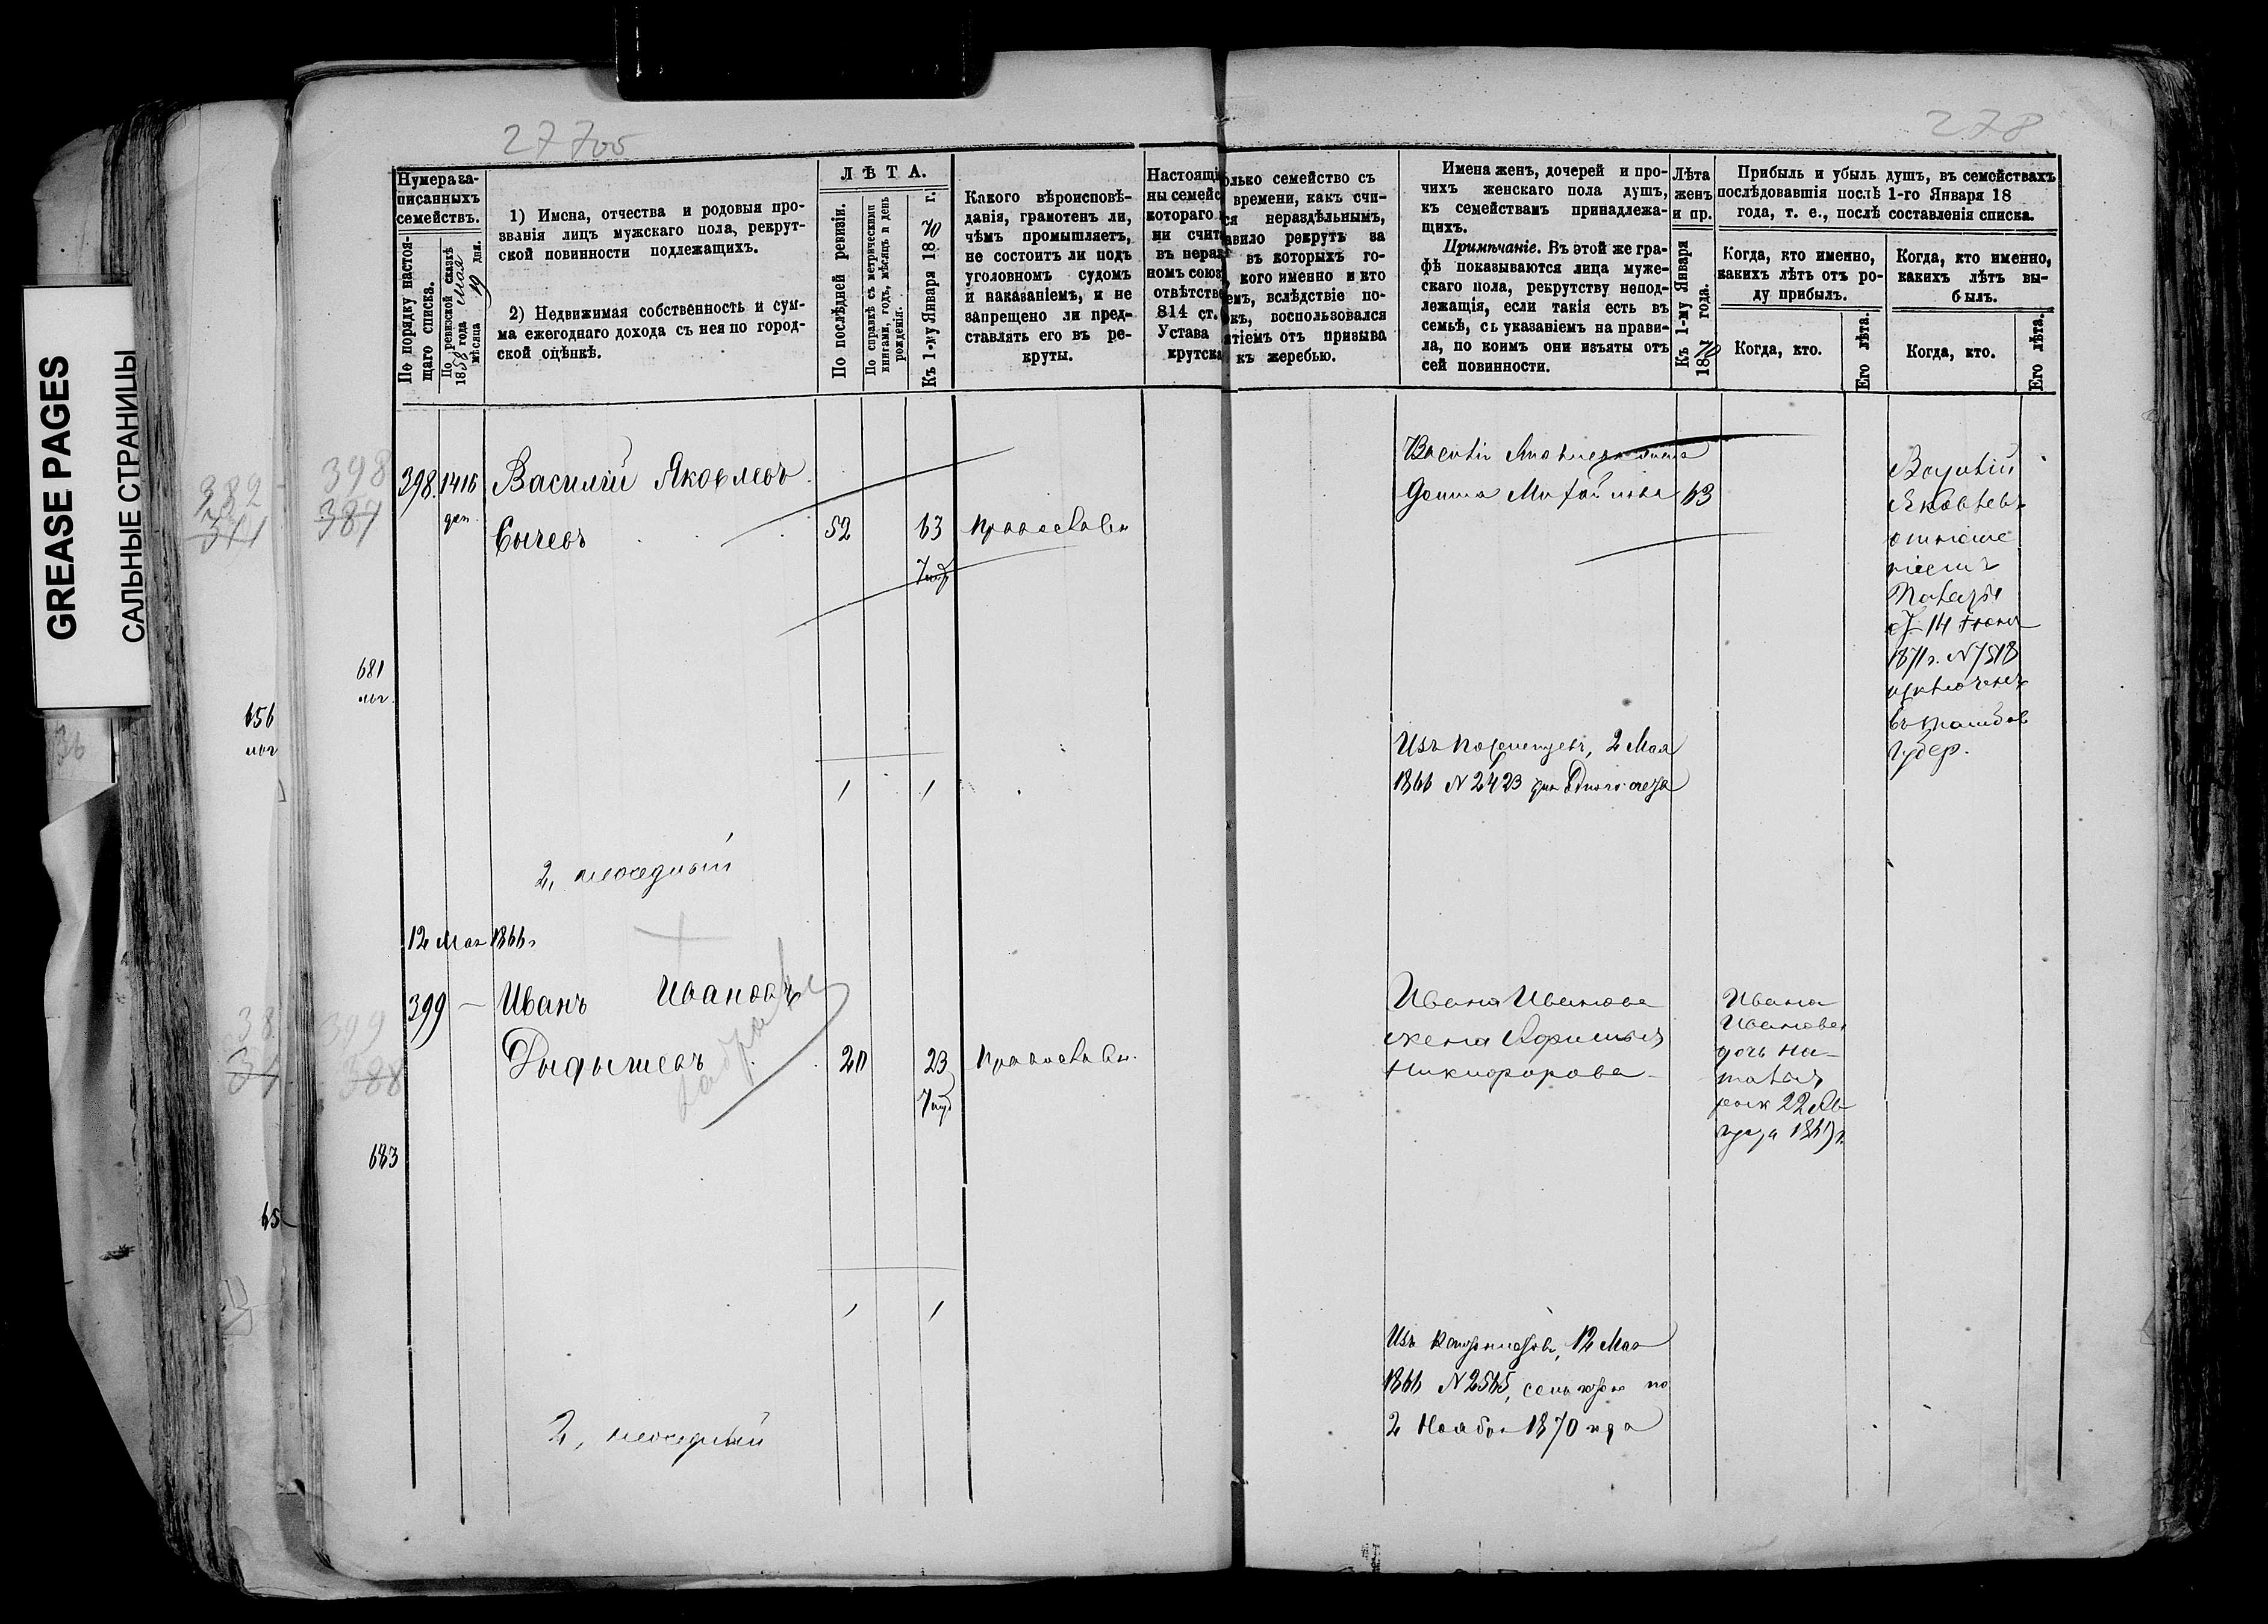 GREASE PAGES
САЛЬНЫЕ СТРАНИЦЫ
277об
278
Нумера за-
писанныхъ
семействъ.
По порядку настоя-
щаго списка.
По ревизской сказкѣ
1858 года мая
мѣсяца 19 дня.
1) Имена, отчества и родовыя про-
званія лицъ мужскаго пола, рекрут-
ской повинности подлежащихъ.
2) Недвижимая собственность и сум-
ма ежегоднаго дохода съ нея по город-
ской оцѣнкѣ.
ЛѢТА.
По послѣдней ревизіи.
По справкѣ съ метрическими
книгами, годъ, мѣсяцъ и день
рожденія.
Къ 1-му Января 1870 г.
Какого вѣроисповѣ-
данія, грамотенъ ли,
чѣмъ промышляетъ,
не состоитъ ли подъ
уголовномъ судомъ
и наказаніемъ, и не
запрещено ли пред-
ставлять его въ ре-
круты.
Настоящі
ны семейс
котораго
ни счит
въ нераз
номъ союз
отвѣтств
814 ст.
Устава
крутска
олько семейство съ
времени, какъ счи-
ся нераздѣльнымъ,
авило рекрутъ за
въ которыхъ го-
кого именно и кто
емъ, вслѣдствіе по-
къ, воспользовался
ятіемъ отъ призыва
къ жеребью.
Имена женъ, дочерей и про-
чихъ женскаго пола душъ,
къ семействамъ принадлежа-
щихъ.
Примѣчаніе. Въ этой же гра-
фѣ показываются лица муже-
скаго пола, рекрутству непод-
лежащія, если такія есть въ
семьѣ, съ указаніемъ на прави-
ла, по коимъ они изъяты отъ
сей повинности.
Лѣта
женъ
и пр.
Къ 1-му Января
1870 года.
Прибыль и убыль душъ, въ семействахъ
послѣдовавшія послѣ 1-го Января 18
года, т. е., послѣ составленія списка.
Когда, кто именно,
какихъ лѣтъ отъ ро-
ду прибылъ.
Когда, кто именно,
какихъ лѣтъ вы-
былъ.
Когда, кто.
Его лѣта.
Когда, кто.
Его лѣта.
382
398
387
398 1416 Василій Яковлевъ
Сычевъ 52 63 Православн
Михайлова 63
Василій
Яковлевъ
отноше
ніемъ
Палаты
14 Іюня
1871 г. N 7518
исключенъ
въ
губер.
681
656
Изъ 2 Мая
1866 N 2423
1 1
2,
12 Мая 1866 г
399 — Иванъ Ивановъ
20 23 Православн.
Ивана Иванова
жена
Никифорова
Ивана
Иванова
дочь На-
талья
род 22 Ав-
густа
399
388
683
65
1 1
Изъ 12 Мая
1866 N 2565, по
2 Ноября 1870 года
2,